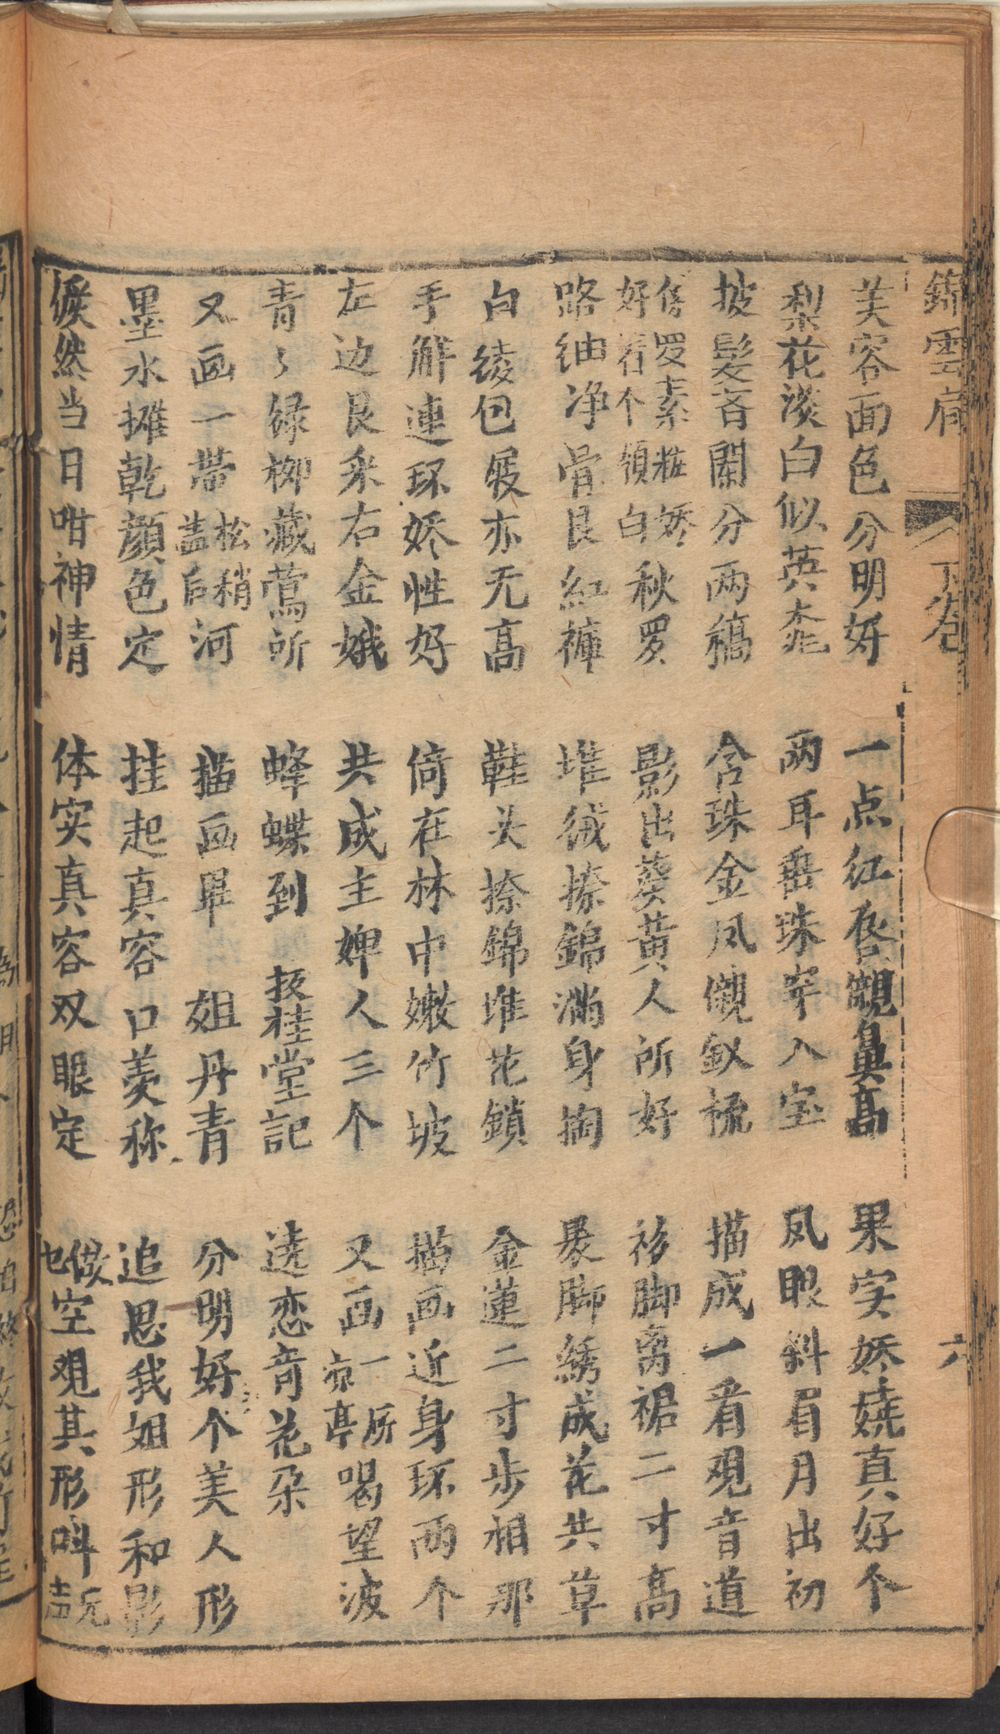 錦雲肩 下卷 六
芙容面色分明好 一点红唇襯鼻高 果实娇嬈真好个
梨花淡白似英桃 两耳垂珠牢八宝 凤眼斜眉月出初
披髮吝開分两稿 含珠金凤儭釵梳 描成一看观音道
罗素粧娇好着个領白秋罗 影出葵黃人所好 衫脚离裙二寸高
路紬净骨艮红褲 堆绒捺錦滿身掏 裹脚綉成花共草
白绫包屐亦无高 鞋头捺錦堆花鎖 金蓮二寸步相那
手觧連环娇性好 倚在林中嫩竹坡 描画近身环两个
左边艮釆右金娥 共成主婢人三个 又画一所凉亭喝望波
青〻绿柳藏鶯所 蜂蝶到扳桂堂記 遶恋奇花朵
又画一帶松稍盖后河 描画畢 姐丹青 分明好个美人形
墨水攤乾顔色定 挂起真容口羡称 追思我姐形和影
候然当日咁神情 体实真容双眼定 做也空观其形呌无声